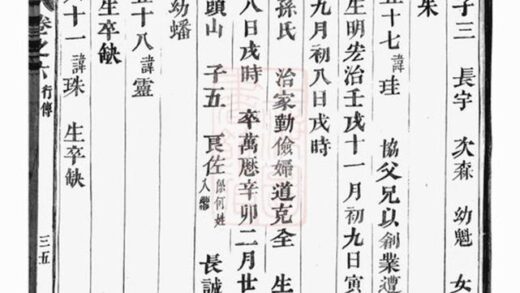 子三 長宇 次森 幼魁 女
朱
五十七 諱珪 協父兄以創業遭
生明宏治壬戌十一月初九日寅
九月初八日戌時
孫氏 治家勤儉婦道克全 生
八日戌時 卒萬厯辛卯二月廿
頭山 子五 良佐 係何姓入繼 長誠
幼蟠
五十八 諱靈
生卒缺
六十一 諱珠 生卒缺
卷之六 行傳 三五